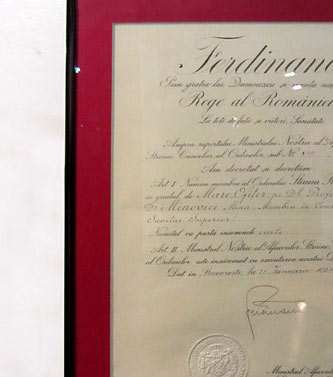 Ferdinand
Prin grația lui Dumnezeu și voința na
Rege al României
La toți de față și viitori, Sănătate
Asupra raportului Ministrului Nostru al Af
Streine, Cancelar al Ordinelor, sub No
Am decretat și decretăm:
Art. I. Numim membru al Ordinului Steaua R
în gradul de Mare Ofițer, pe Dl. Prof
Dr. Minovici Mina, Membru în Cons
Sanitar Superior.
Numitul va purta însemnele civile.
Art. II. Ministrul Nostru al Afacerilor Streine
al Ordinelor, este însărcinat cu executarea acestui D
Dat în București, la 25 Ianuarie
Ferdinand
Ministrul Afacer